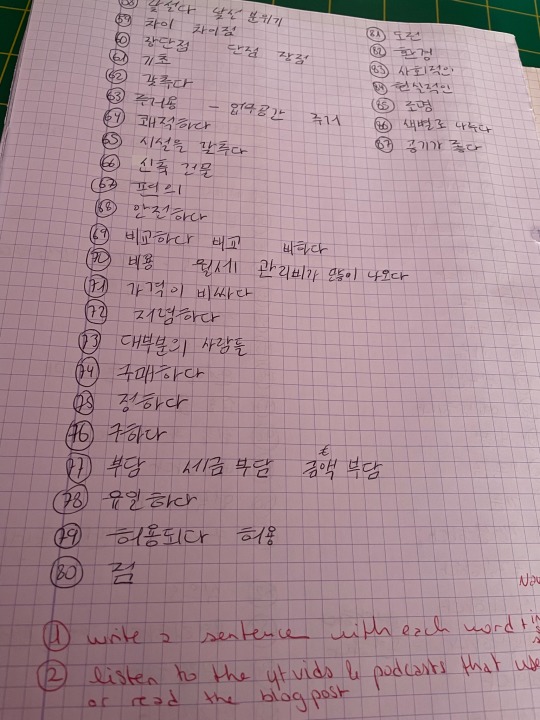 58 낯설다 낯선 분위기
59 차이 차이점
60 장단점 단점 장점
61 기초
62 갖추다
63 주거용 – 업무공간 주거
64 쾌적하다
65 시설을 갖추다
66 신축 건물
67 편의
68 안전하다
69 비교하다 비교
70 비용 월세 관리비가 많이 나오다
71 가격이 비싸다
72 저렴하다
73 대부분의 사람들
74 구매하다
75 정하다
76 구하다
77 부담 세금 부담 금액 부담
78 유일하다
79 허용되다 허용
80 점
81 도전
82 환경
83 사회적인
84 현실적인
85 조명
86 새벽
87 공기가 좋다
① write a sentence with each word +
② listen to the yt vids & podcasts that
or read the blogpost